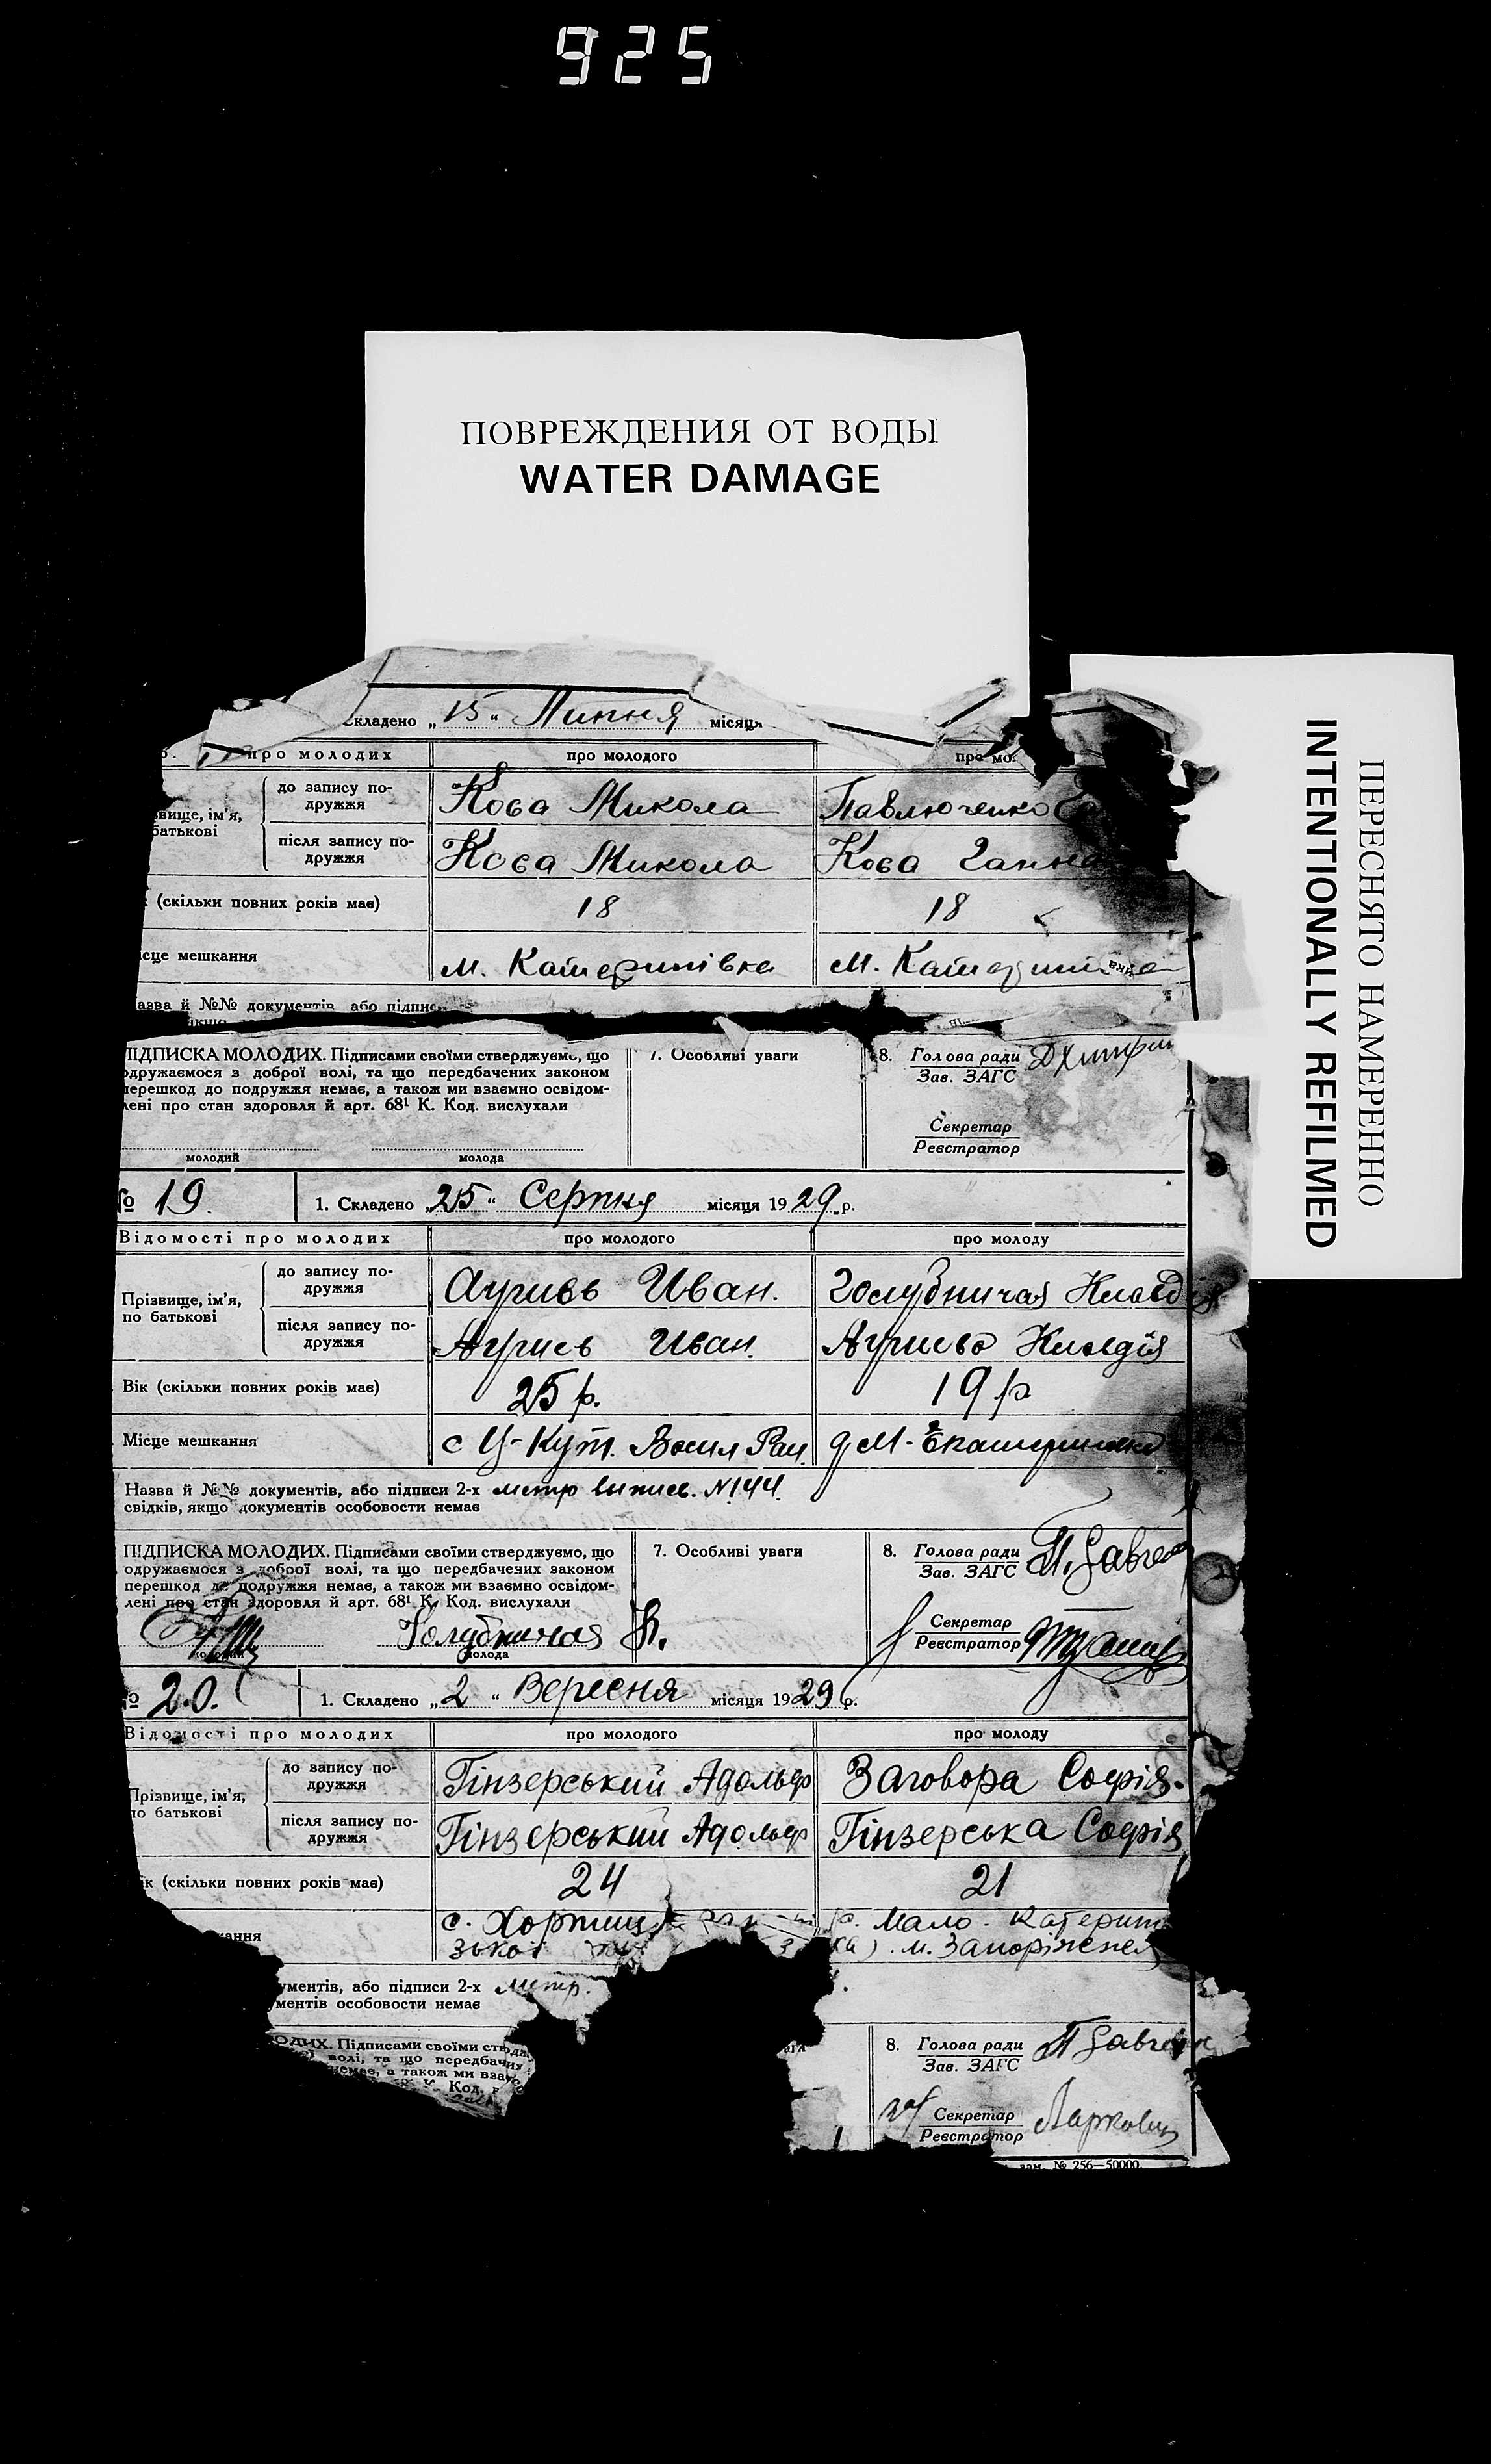 925
ПОВРЕЖДЕНИЯ ОТ ВОДЫ
WATER DAMAGE
ПЕРЕСНЯТО НАМЕРЕННО
INTENTIONALLY REFILMED
Складено „15“ Липня місяця
про молодих про молодого про мо.
до запису подружжя Кова Микола Павлюченко
вище, ім'я, батькові
після запису подружжя Кова Микола Кова Ганна
(скільки повних років має) 18 18
сце мешкання м. Катеринівка м. Катерині
азва й №№ документів або підпис
ПІДПИСКА МОЛОДИХ. Підписами своїми стверджуємо, що 7. Особливі уваги 8. Голова ради
одружаємося з доброї волі, та що передбачених законом Зав. ЗАГС
перешкод до подружжя немає, а також ми взаємно освідом-
лені про стан здоров'я й арт. 68¹ К. Код. вислухали Секретар
Реєстратор
молодий молода
№ 19. 1. Складено „25“ Серпня місяця 1929 р.
Відомості про молодих про молодого про молоду
до запису подружжя Иван. Голубничая Клавдія
Прізвище, ім'я,
по батькові
після запису подружжя Иван.  Клавдія
Вік (скільки повних років має) 25 р. 19 р
Місце мешкання с Ц-Кут. Васил Рай. М-Екатериновка
Назва й №№ документів, або підписи 2-х метр выпис. №144.
свідків, якщо документів особовости немає
ПІДПИСКА МОЛОДИХ. Підписами своїми стверджуємо, що 7. Особливі уваги 8. Голова ради
одружаємося з доброї волі, та що передбачених законом Зав. ЗАГС
перешкод до подружжя немає, а також ми взаємно освідом-
лені про стан здоровля й арт. 68¹ К. Код. вислухали Секретар
Голубничая К. Реєстратор
молодий молода
№ 20. 1. Складено „2“ Вересня місяця 1929 р.
Відомості про молодих про молодого про молоду
до запису подружжя Гінзерський Адольф Заговора Софія.
Прізвище, ім'я,
по батькові
після запису подружжя Гінзерський Адольф Гінзерська Софія
ік (скільки повних років має) 24 21
с. Хортиц с. Мало. Катерин
ання зької ка). м. Запоріжжя
ументів, або підписи 2-х метр.
ментів особовости немає
ОДИХ. Підписами своїми ствдж 8. Голова ради
волі, та що передбачн Зав. ЗАГС
немає, а також ми взає
Код. Секретар
Реєстратор
зам. № 256—50000.